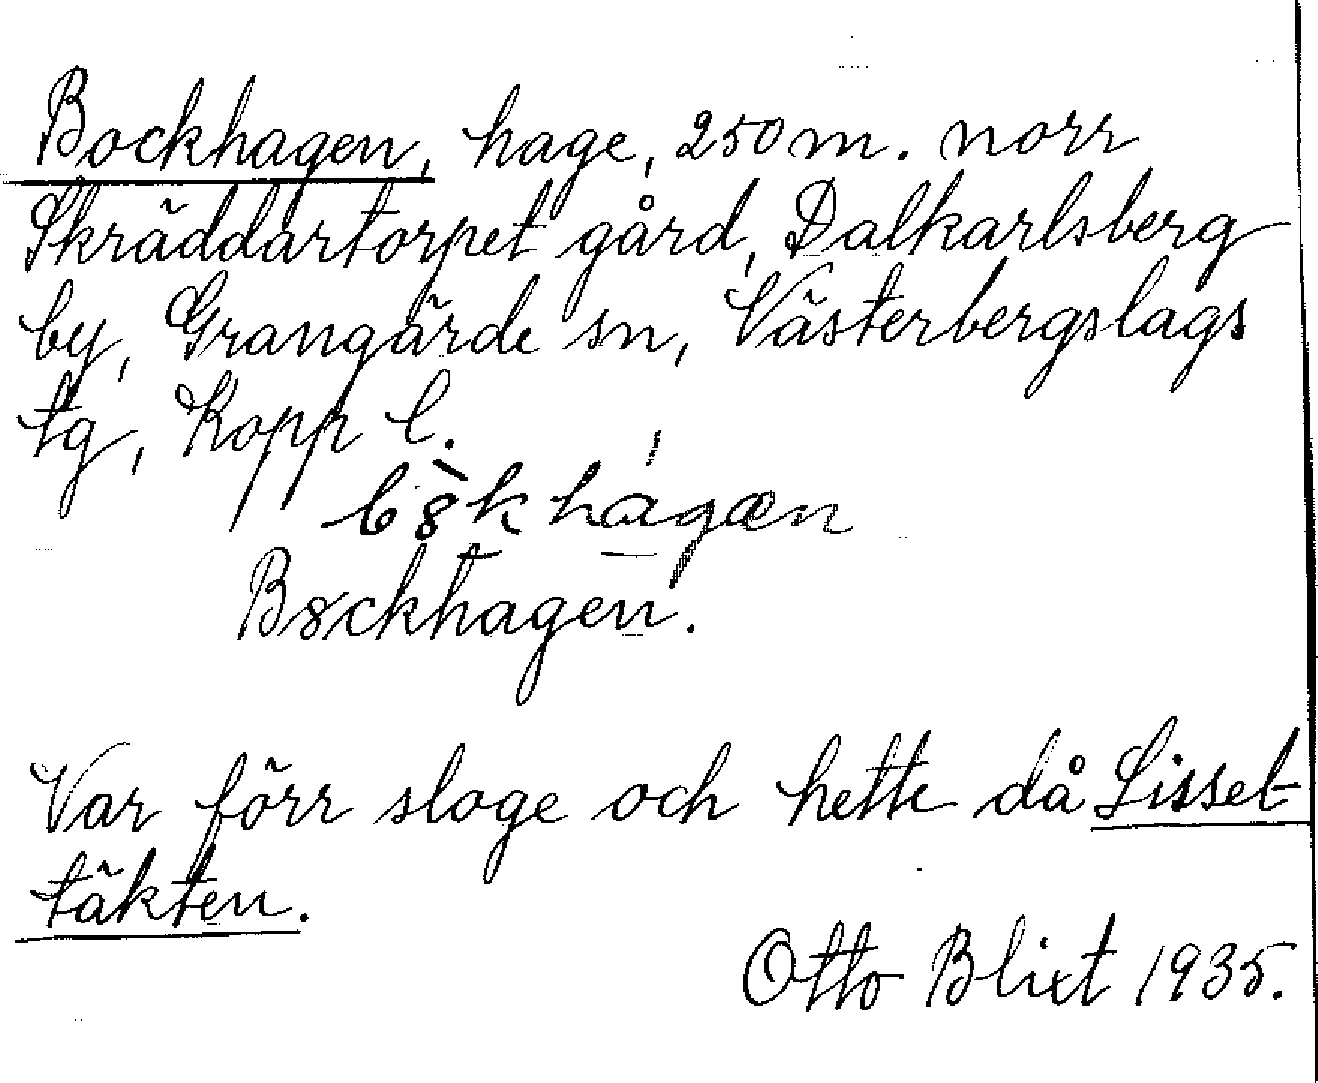 Bockhagen, hage, 250 m. norr
Skräddartorpet gård, Dalkarlsberg
by, Grangärde sn, Västerbergslags
tg, Kopp l.
b8̀k hagæn
B8ckhagen.
Var förr sloge och hette då Lissel-
täkten.
Otto Blixt 1935.